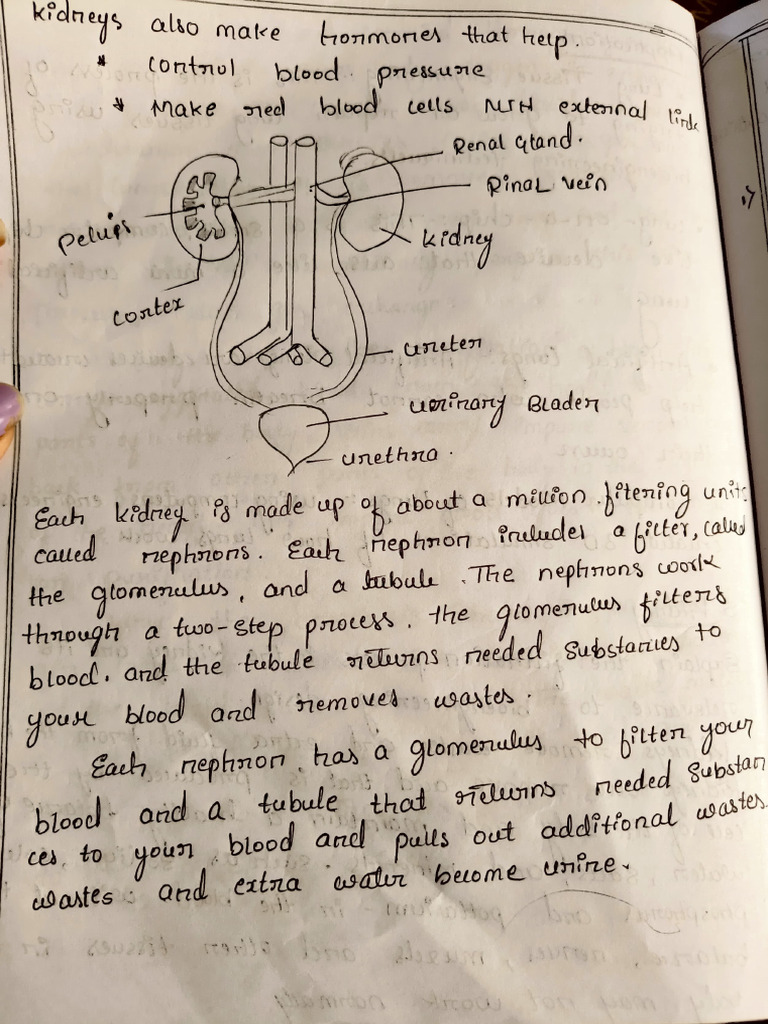 kidneys also make hormones that help.
* control blood pressure
* Make red blood cells NIH external link
Renal Gland.
Rinal vein
Pelvis
kidney
cortex
ureter
urinary Blader
urethra.
Each kidney is made up of about a million fitering units
called nephrons. Each nephron includes a filter, called
the glomerulus, and a tubule. The nephrons work
through a two-step process. the glomerulus filters
blood. and the tubule returns needed substances to
your blood and removes wastes.
Each nephron has a glomerulus to filter your
blood and a tubule that returns needed substan
ces to your blood and pulls out additional wastes.
wastes and extra water become urine.